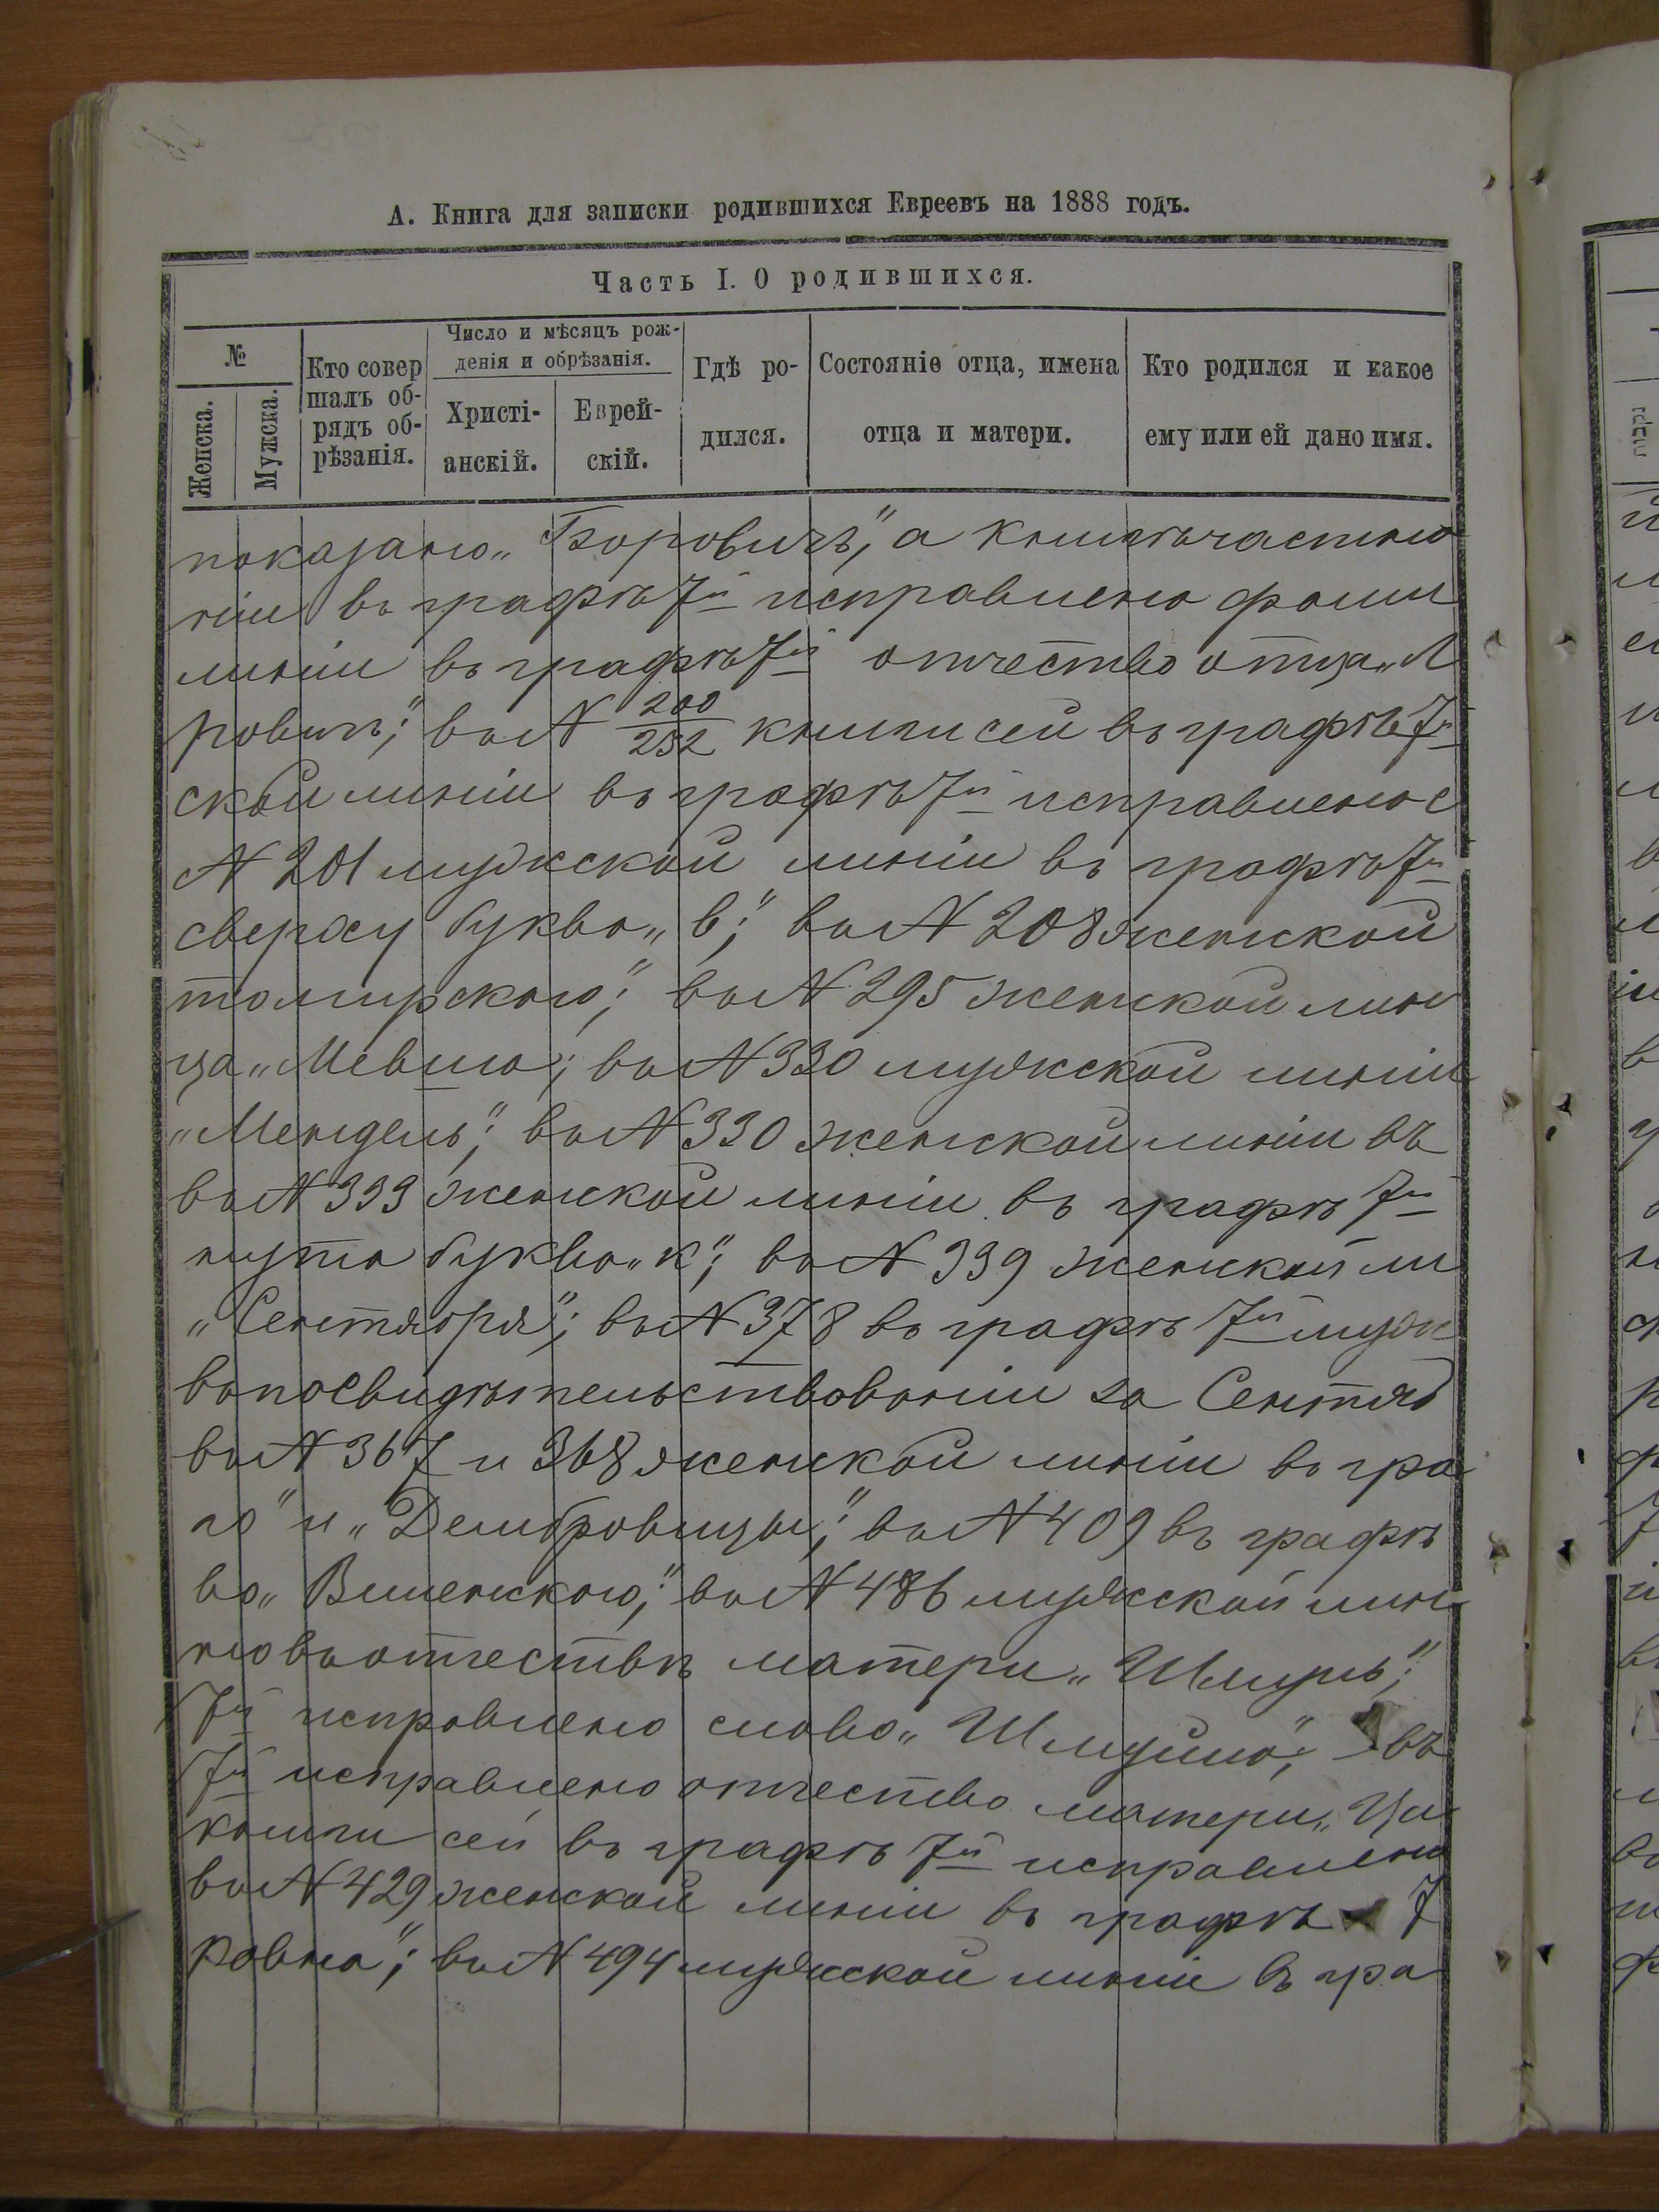 А. Книга для записки родившихся Евреевъ на 1888 годъ.
Часть I. О родившихся.
№
Женска.
Мужска.
Кто совер
шалъ об-
рядъ об-
рѣзанія.
Число и мѣсяцъ рож-
денія и обрѣзанія.
Христі-
анскій.
Еврей-
скій.
Гдѣ ро-
дился.
Состояніе отца, имена
отца и матери.
Кто родился и какое
ему или ей дано имя.
показано „Боровичъ“, а
ніи въ графѣ 7й исправлено фами
линіи въ графѣ 7й отчество отца „Л
ровичъ“; въ N 200/252 книги сей въ графѣ 7й
ской линіи въ графѣ 7й исправлено с
N 201 мужской линіи въ графѣ 7й
сверху буква „в“; въ N 208 женской
томирского“; въ N 295 женской лин
ца „Мевша“; въ N 330 мужской линіи
„Мендель“; въ N 330 женской линіи въ
въ N 333 женской линіи въ графѣ 7й
нута буква „к“; въ N 339 женской ли
„Сентября“; въ N 378 въ графѣ 7й муж
въ посвидѣтельствованіи за Сентяб
въ N 367 и 368 женской линіи въ гра
го“ и „Дембровицы“; въ N 409 въ графѣ
во „Виленского“; въ N 486 мужской лин
но въ отчествѣ матери „Шмуль“;
7й исправлено слово „Шмуйло“; въ
7й исправлено отчество матери „Ци
книги сей въ графѣ 7й исправлено
въ N 429 женской линіи въ графѣ 7
ровна“; въ N 494 мужской линіи въ гра